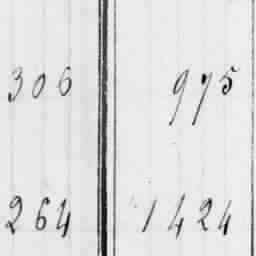 306 975
264 1424